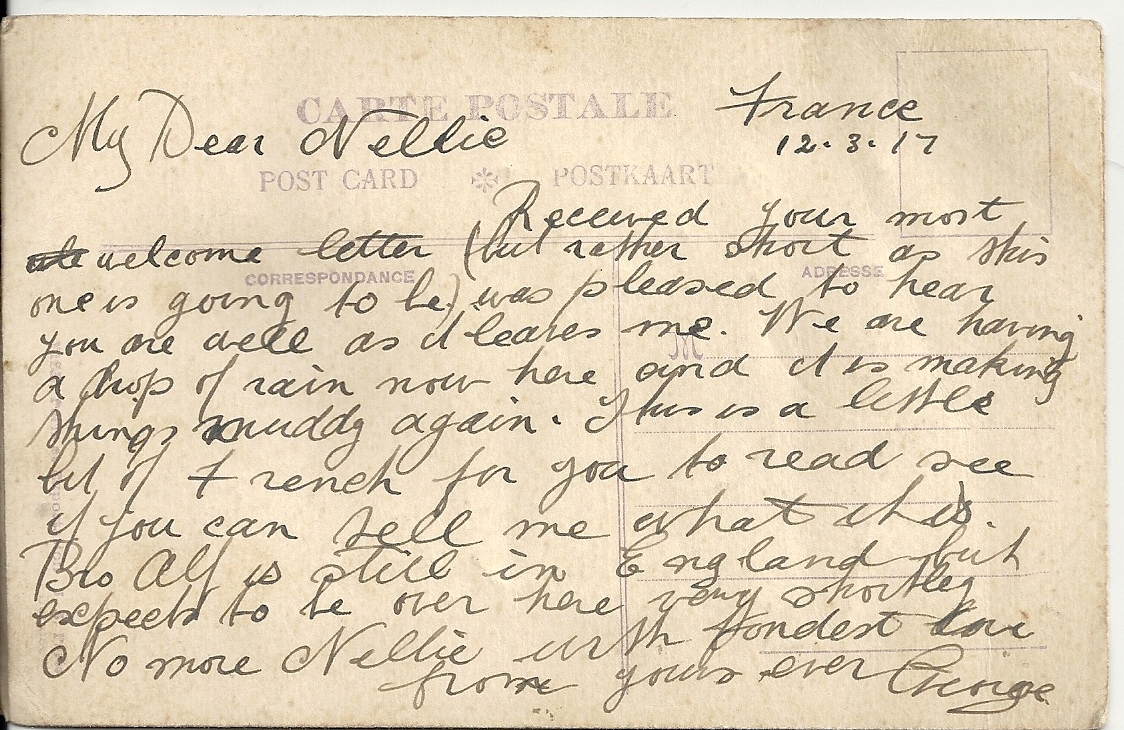 CARTE POSTALE
France
My Dear Nellie
12.3.17
POST CARD POSTKAART
Received your most
welcome letter (but rather short as this
CORRESPONDANCE
ADRESSE
one is going to be) was pleased to hear
you are well as it leaves me. We are having
a drop of rain now here and it is making
things muddy again. This is a little
bit of French for you to read see
if you can tell me what it is.
Bro Alf is still in England but
expects to be over here very shortly
No more Nellie with fondest love
from yours ever George